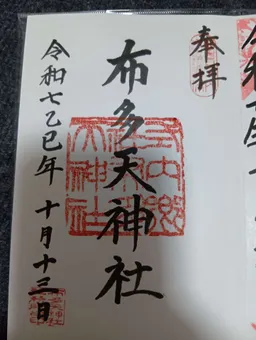 奉拝
布多天神社
令和七乙巳年 十月十三日